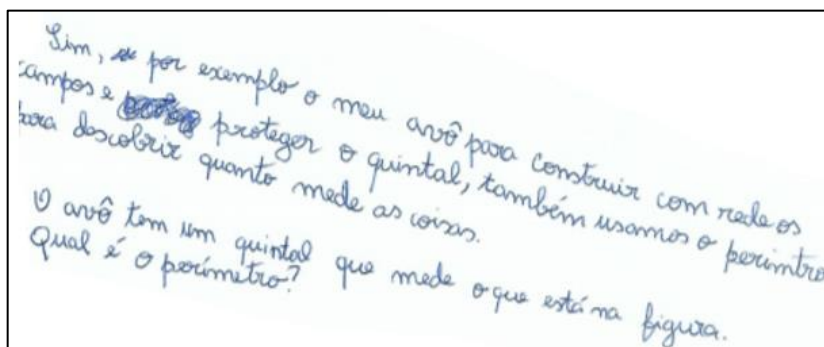 Sim, por exemplo o meu avô para construir com rede os
campos e proteger o quintal, também usamos o perimtro
para descobrir quanto mede as coisas.
O avô tem um quintal que mede o que está na figura.
Qual é o perímetro?